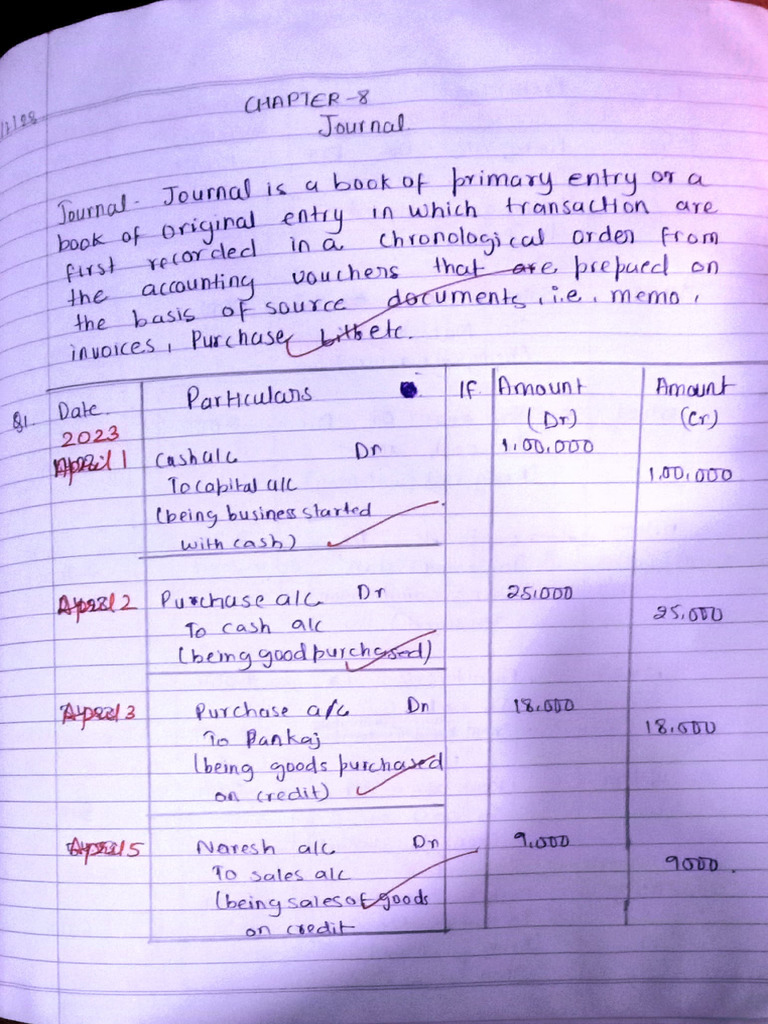 CHAPTER-8
Journal
Journal - Journal is a book of primary entry or a
book of original entry in which transaction are
first recorded in a chronological order from
the accounting vouchers that are prepaed on
the basis of source documents, i.e. memo,
invoices, Purchase bills etc.
Q1. Date Particulars lF Amount (Dr) Amount (Cr)
2023
April 1 Cash a/c Dr 1,00,000
To capital a/c 1,00,000
(being business started
with cash)
April 2 Purchase a/c Dr 25,000
To cash a/c 25,000
(being good purchased)
April 3 Purchase a/c Dr 18,000
To Pankaj 18,000
(being goods purchased
on credit)
April 5 Naresh a/c Dr 9,000
To sales a/c 9000.
(being sales of goods
on credit